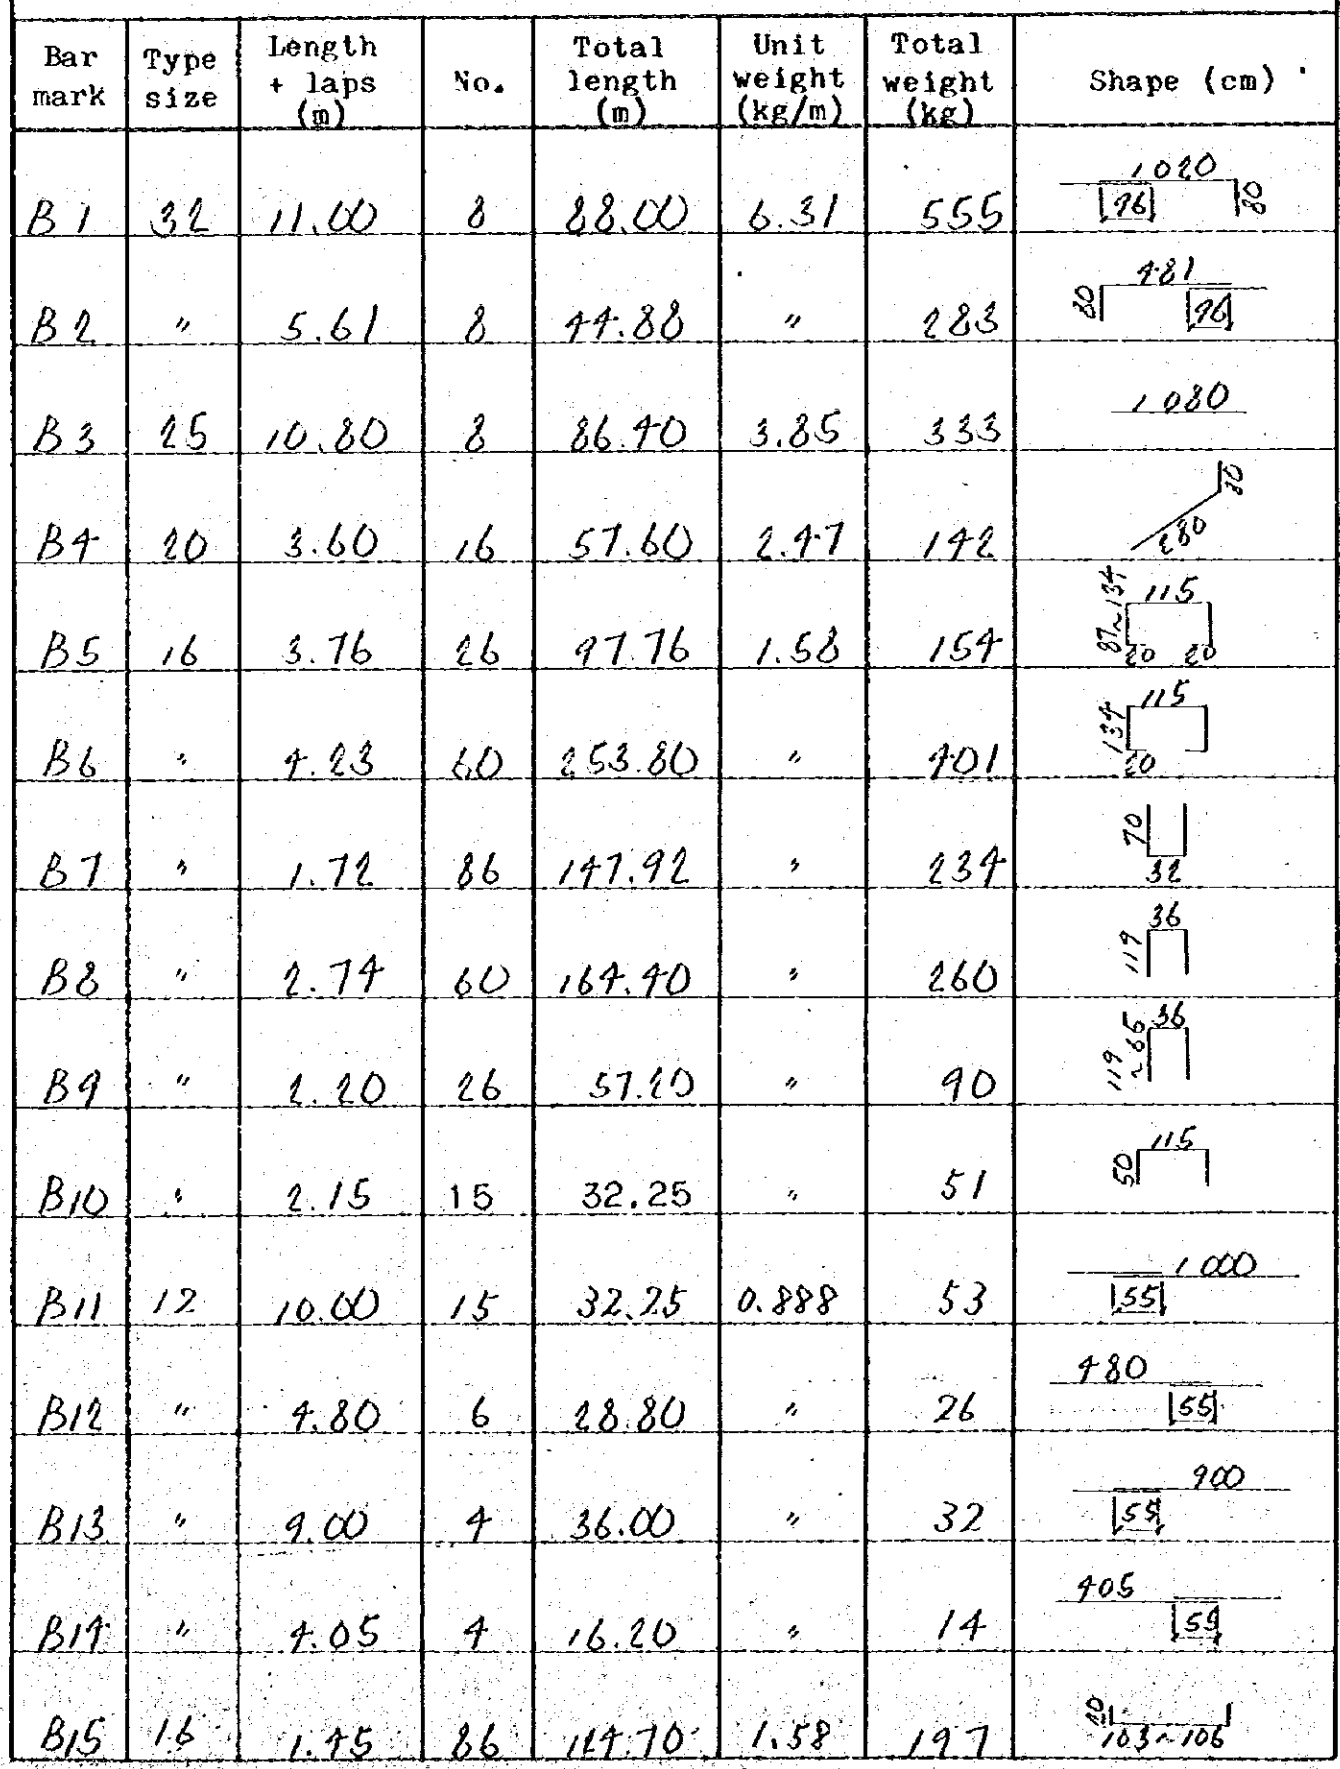 Bar mark | Type size | Length + laps (m) | No. | Total length (m) | Unit weight (kg/m) | Total weight (kg) | Shape (cm)
B1 | 32 | 11.00 | 8 | 88.00 | 6.31 | 555 | 1020 96 80
B2 | " | 5.61 | 8 | 44.88 | " | 283 | 80 481 96
B3 | 25 | 10.80 | 8 | 86.40 | 3.85 | 333 | 1080
B4 | 20 | 3.60 | 16 | 57.60 | 2.47 | 142 | 280 80
B5 | 16 | 3.76 | 26 | 97.76 | 1.58 | 154 | 87~134 115 20 20
B6 | " | 4.23 | 60 | 253.80 | " | 401 | 134 115 20
B7 | " | 1.72 | 86 | 147.92 | " | 234 | 70 32
B8 | " | 2.74 | 60 | 164.40 | " | 260 | 119 36
B9 | " | 2.20 | 26 | 57.20 | " | 90 | 119 ~65 36
B10 | " | 2.15 | 15 | 32.25 | " | 51 | 50 115
B11 | 12 | 10.00 | 15 | 32.25 | 0.888 | 53 | 1000 55
B12 | " | 4.80 | 6 | 28.80 | " | 26 | 480 55
B13 | " | 9.00 | 4 | 36.00 | " | 32 | 900 55
B14 | " | 4.05 | 4 | 16.20 | " | 14 | 405 55
B15 | 16 | 1.45 | 86 | 124.70 | 1.58 | 197 | 20 103~106